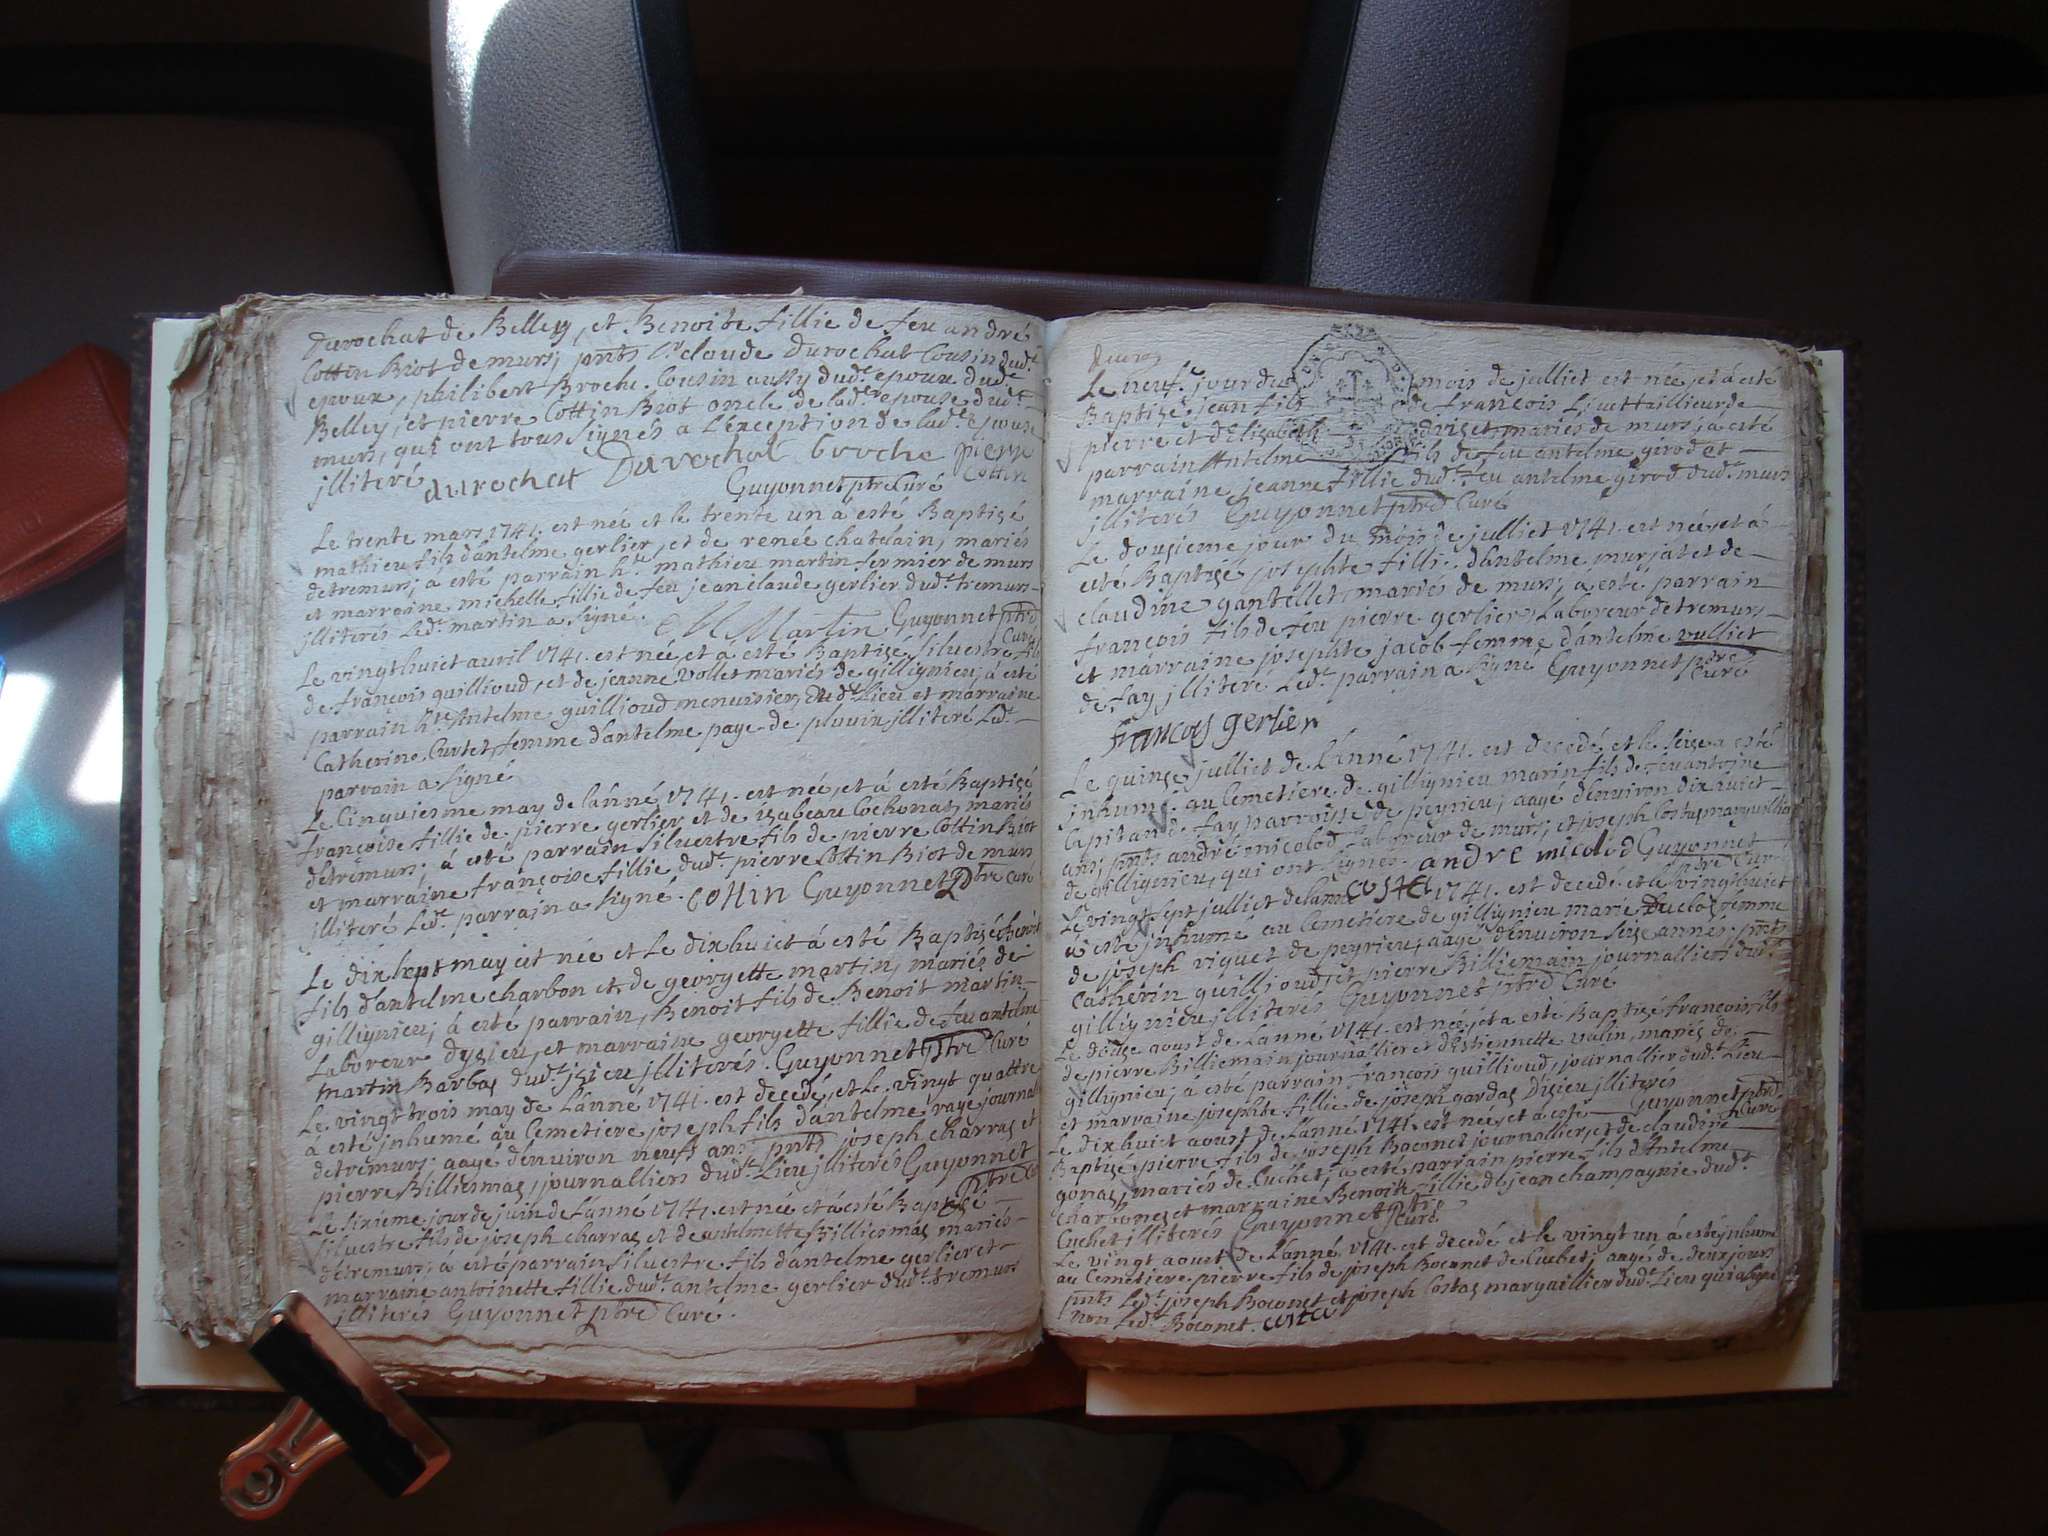 Durochat de Belley, et Benoite fillie de feu andré
Cottin Biot de murs; pnts Sr. claude Durochat Cousin dudt
epoux, philibert Broche Cousin aussy dudt epoux dudt
Belley, et pierre Cottin Biot oncle de ladt epouse dudt
murs, qui ont tous signés a l'exception de ladt Epouse
jlliteré durochat Durochat broche pierre
Cottin
Guyonnet ptre Curé
Le trente mars 1741. est née et le trente un a esté Baptisé
mathieu fils d'antelme gerlier, et de renée chatelain, mariés
de tremurs; a esté parrain ht. mathieu martin fermier de murs
et marraine michelle fillie de feu jean claude gerlier dudt tremurs
jlliterés Ledt martin a signé. M Martin Guyonnet ptre
Curé
Le vingt huict avril 1741. est née et a esté Baptisé silvestre fils
de francois guillioud, et de jeanne vollet mariés de gillignieu; á esté
parrain ht. Antelme guillioud menuisier dudt Lieu et marraine
Catherine Curtet femme d'antelme paye de plouin jlliteré Ledt
parrain a signé
Le Cinquiesme may de l'anné 1741. est née, et á esté Baptisé
françoise fillie de pierre gerlier et de izabeau Cochonat mariés
de tremurs; á esté parrain silvestre fils de pierre Cottin Biot
et marraine françoise fillie dudt pierre Cottin Biot de murs
jlliteré Ledt parrain a signé. cottin Guyonnet Ptre Curé
Le dix sept may est née et Le dix huict á esté Baptisé Benoit
fils d'antelme charbon et de georgette martin, mariés de
gillignieu; á esté parrain, Benoit fils de Benoit martin
Laboreur dysieu, et marraine georgette fillie de feu antelme
martin Barbas dudt jsieu jlliterés. Guyonnet ptre Curé
Le vingt trois may de L'anné 1741. est decedé, et Le vingt quattre
á esté jnhumé au Cemetiere joseph fils d'antelme raye journal
de tremurs; aagé d'enuiron neuf ans pnts joseph charras et
pierre Billiemas, journalliers dudt Lieu jlliterés Guyonnet
ptre Cu
Le sixieme jour de juin de L'anné 1741. est née et á esté Baptisé
silvestre fils de joseph charras et de antelmette Billiemas mariés
de tremurs; á esté parrain silvestre fils d'antelme gerlier et
marraine antoinette fillie dudt antelme gerlier dudt tremurs
jlliterés Guyonnet ptre Curé.
Le neufe jour du mois de julliet est née, et á esté
Baptisé jean fils de francois taillieur de
pierre et d'Elizabeth mariés de murs; a esté
parrain Antelme fils de feu antelme girod et
marraine jeanne fillie dudt feu antelme girod dudt murs
jlliterés Guyonnet ptre Curé
Le dousieme jour du mois de julliet 1741. est née, et á
esté Baptisé josephte fillie d'antelme murjat et de
claudine gantellet mariés de murs; a esté parrain
francois fils de feu pierre gerlier Laboreur de tremurs
et marraine josephte jacob femme d'antelme vulliet
de fay jlliteré Ledt parrain a signé Guyonnet ptre
Curé
francois gerlier
Le quinse julliet de L'anné 1741. est decedé et le seise a esté
jnhumé au Cemetiere de gillignieu marin fils de feu antoine
Capitan de fay parroisse de peyrieu; aagé d'enuiron dix huict
ans; pnts andré micolod Laboreur de murs; et joseph Costaz marguillier
de gillignieu, qui ont signés. andre micolod Guyonnet
ptre Curé
Le vingt sept julliet de l'anné costa 1741. est decedé et le vingt huict
á esté jnhumé au Cemetiere de gillignieu marie Duclos femme
de joseph viguet de peyrieu; aagé d'enuiron seise annés; pnts
Catherin guillioud, et pierre Billiemain journalliers dudt
gillignieu, jlliterés Guyonnet ptre Curé
Le douse aoust de L'anné 1741. est née, et a esté Baptisé francois fils
de pierre Billiemain journallier et d'Estiennette valin, mariés de
gillignieu; á esté parrain francois guillioud, journallier dudt Lieu
et marraine josephte fillie de joseph gardas Disieu jlliterés
Guyonnet ptre
Curé
Le dix huict aoust de L'anné 1741. est née, et a esté
Baptisé pierre fils de joseph Boconet journallier, et de claudine
gonas, mariés de Cuchet; á esté parrain pierre fils d'Antelme
charbonet et marraine Benoite fillie de jean champagnie dudt
Cuchet jlliterés Guyonnet ptre
Curé
Le vingt aoust de L'anné 1741. est decedé et le vingt un á esté jnhumé
au Cemetiere pierre fils de joseph Boconet de Cuchet; aagé de deux jours
pnts Ledt joseph Boconet et joseph Costaz marguillier dudt Lieu qui a signé
non Ledt Boconet. costa